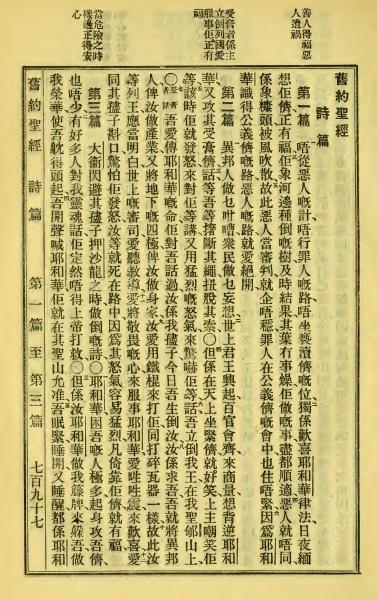 善人得福惡
人遭禍
受膏者係主
立倒列國愛
服事佢正有
福
當危險之時
樣邊正得安
心
舊約聖經
詩篇
第一篇 唔從惡人嘅計唔行罪人嘅路唔坐䙝瀆儕嘅位獨係歡喜耶和華律法日夜緬
想佢儕正有福佢象河邊種倒嘅樹及時結果其葉有事燥佢做嘅事盡都順適惡人就唔同
係象糠頭被風吹散故此惡人當審判就企唔穩罪人在公義儕嘅會中也住唔緊因爲耶和
華識得公義儕嘅路惡人嘅路就愛絕開
第二篇 異邦人做乜咁嘈衆民做乜妄想世上君王興起百官會齊來商量想背逆耶和
華又攻其受膏儕話等吾等撐斷其繩扭脫其索○但係在天上坐緊儕就好笑上主嘲笑佢
等該時佢就發怒來對佢等講又用猛烈嘅怒氣來驚嚇佢等話吾立倒我王在我聖郇山上
○受膏者話吾愛傳耶和華嘅命佢對吾話過汝係我孻子今日吾生倒汝汝係求吾吾就將異邦
人俾汝做產業又將地下嘅四極俾汝做身家汝愛用鐵棍來打佢同打碎瓦器一樣故此汝
等列王應當明白世上嘅審司愛聽教導愛將敬畏嘅心來服事耶和華愛呭呭震來歡喜愛
同其孻子斟口驚怕佢發怒汝等就死在路中因爲其怒氣容易猛烈凡倚靠佢儕就有福
第三篇 大衛閃避其孻子押沙龍之時做倒嘅詩○耶和華因吾嘅人極多起身攻吾儕
也唔少有好多人對我靈魂話佢定然唔得上帝打救○但係汝耶和華做我籐牌來躲吾做
我榮華使吾躭得頭起吾開聲喊耶和華佢就在其聖山允准吾眠緊睡開又睡醒都係耶和
舊約聖經 詩篇 第一篇至第三篇 七百九十七